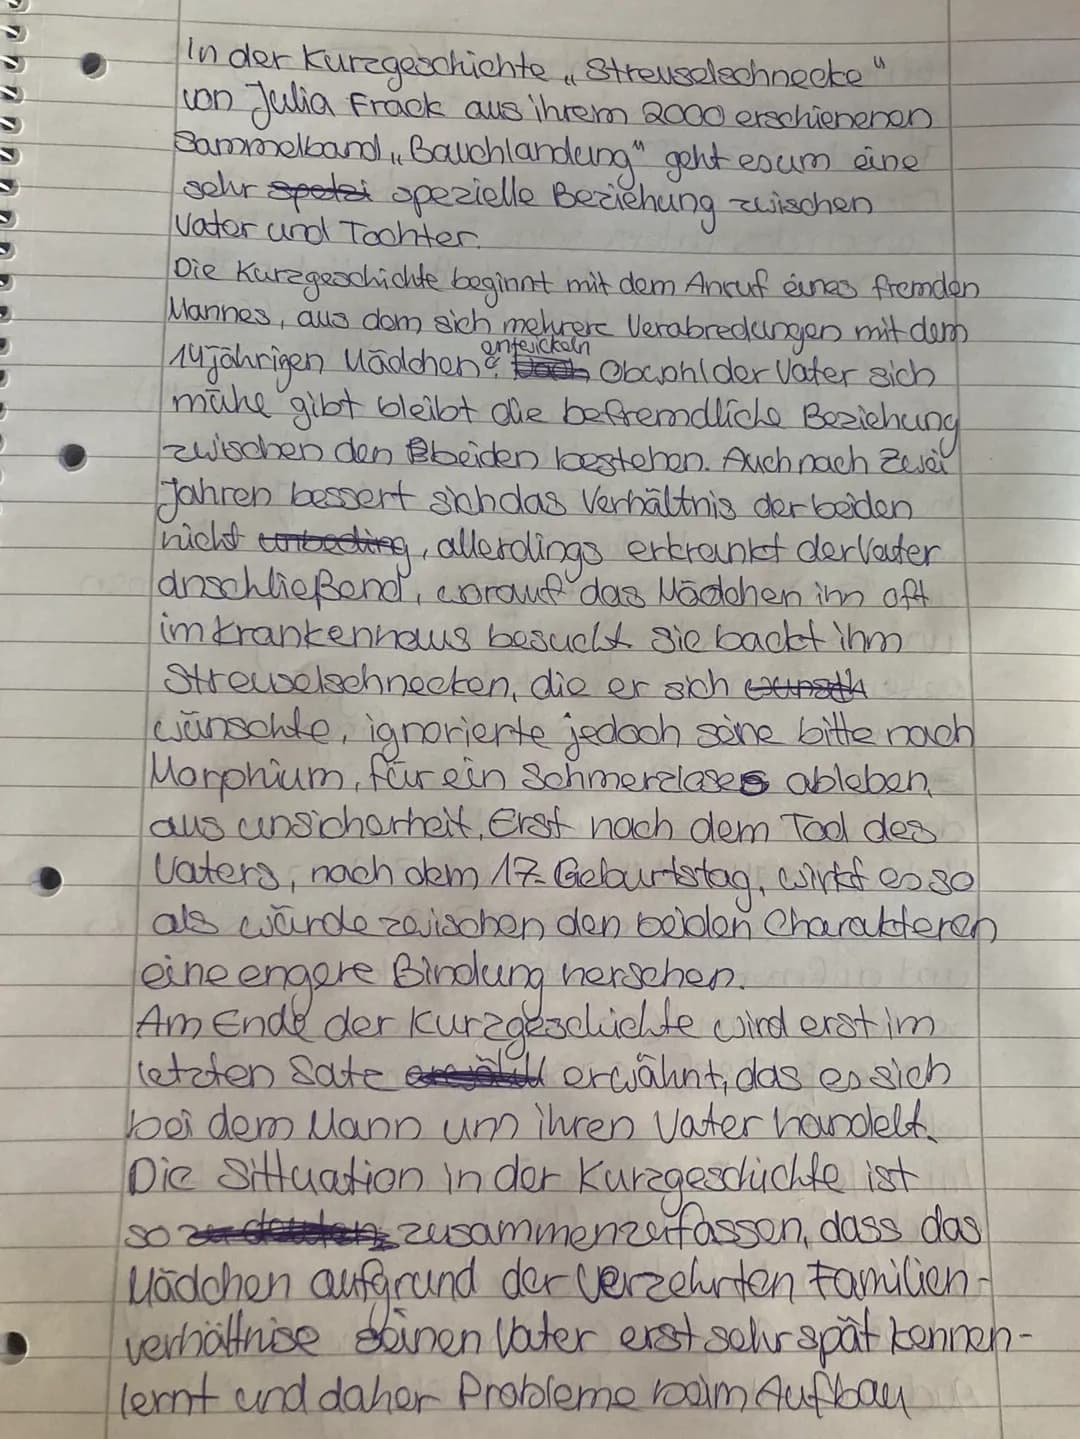 In der Kurzgeschichte „Streuselschnecke"
von Julia Frack aus ihrem 2000 erschienenen
Sammelband „Bauchlandung" geht es um eine
sehr spetzi spezielle Beziehung zwischen
Vater und Tochter.
Die Kurzgeschichte beginnt mit dem Anruf eines fremden
Mannes, aus dem sich mehrere Verabredungen mit dem
entwickeln
14 jährigen Mädchen. Doch Obwohl der Vater sich
mühe gibt bleibt die befremdliche Beziehung
zwischen den beiden bestehen. Auch nach Zwei
Jahren bessert sich das Verhältnis der beiden
nicht unbeding, allerdings erkrankt der Vater
anschließend, worauf das Mädchen ihn oft
im Krankenhaus besucht. Sie backt ihm
Streuselschnecken, die er sich wünsch
wünschte, ignorierte jedoch seine bitte nach
Morphium, für ein Schmerzloses ableben,
aus unsicherheit. Erst nach dem Tod des
Vaters, nach dem 17. Geburtstag, wirkt es so
als würde zwischen den beiden Charakteren
eine engere Bindung herschen.
Am Ende der Kurzgeschichte wird erst im
letzten Satz erwähnt, das es sich
bei dem Mann um ihren Vater handelt.
Die Sittuation in der Kurzgeschichte ist
so zu deuten, zusammenzufassen, dass das
Mädchen aufgrund der Verzehrten Familien-
verhältnise seinen Vater erst sehr spät kennen-
lernt und daher Probleme beim Aufbau